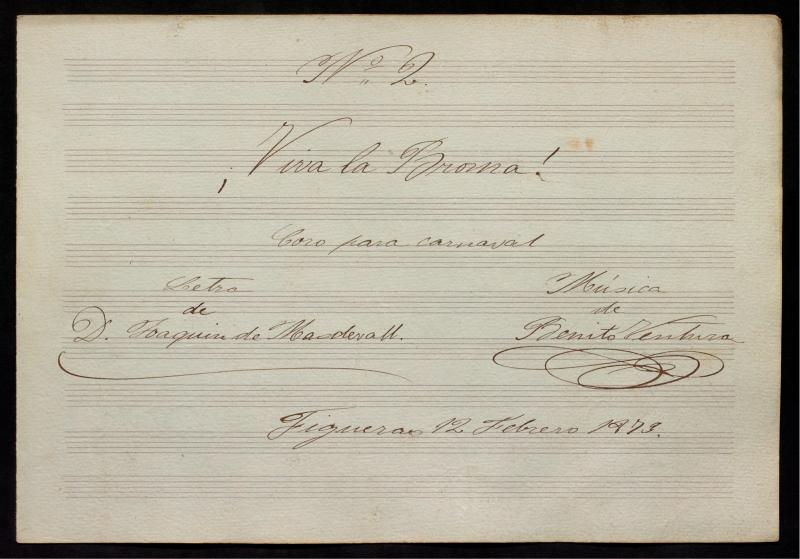 Nº 2.
¡Viva la Broma!
Coro para carnaval
Letra
de
D. Joaquin de Masdevall.
Música
de
Benito Ventura
Figueras 12 Febrero 1873.